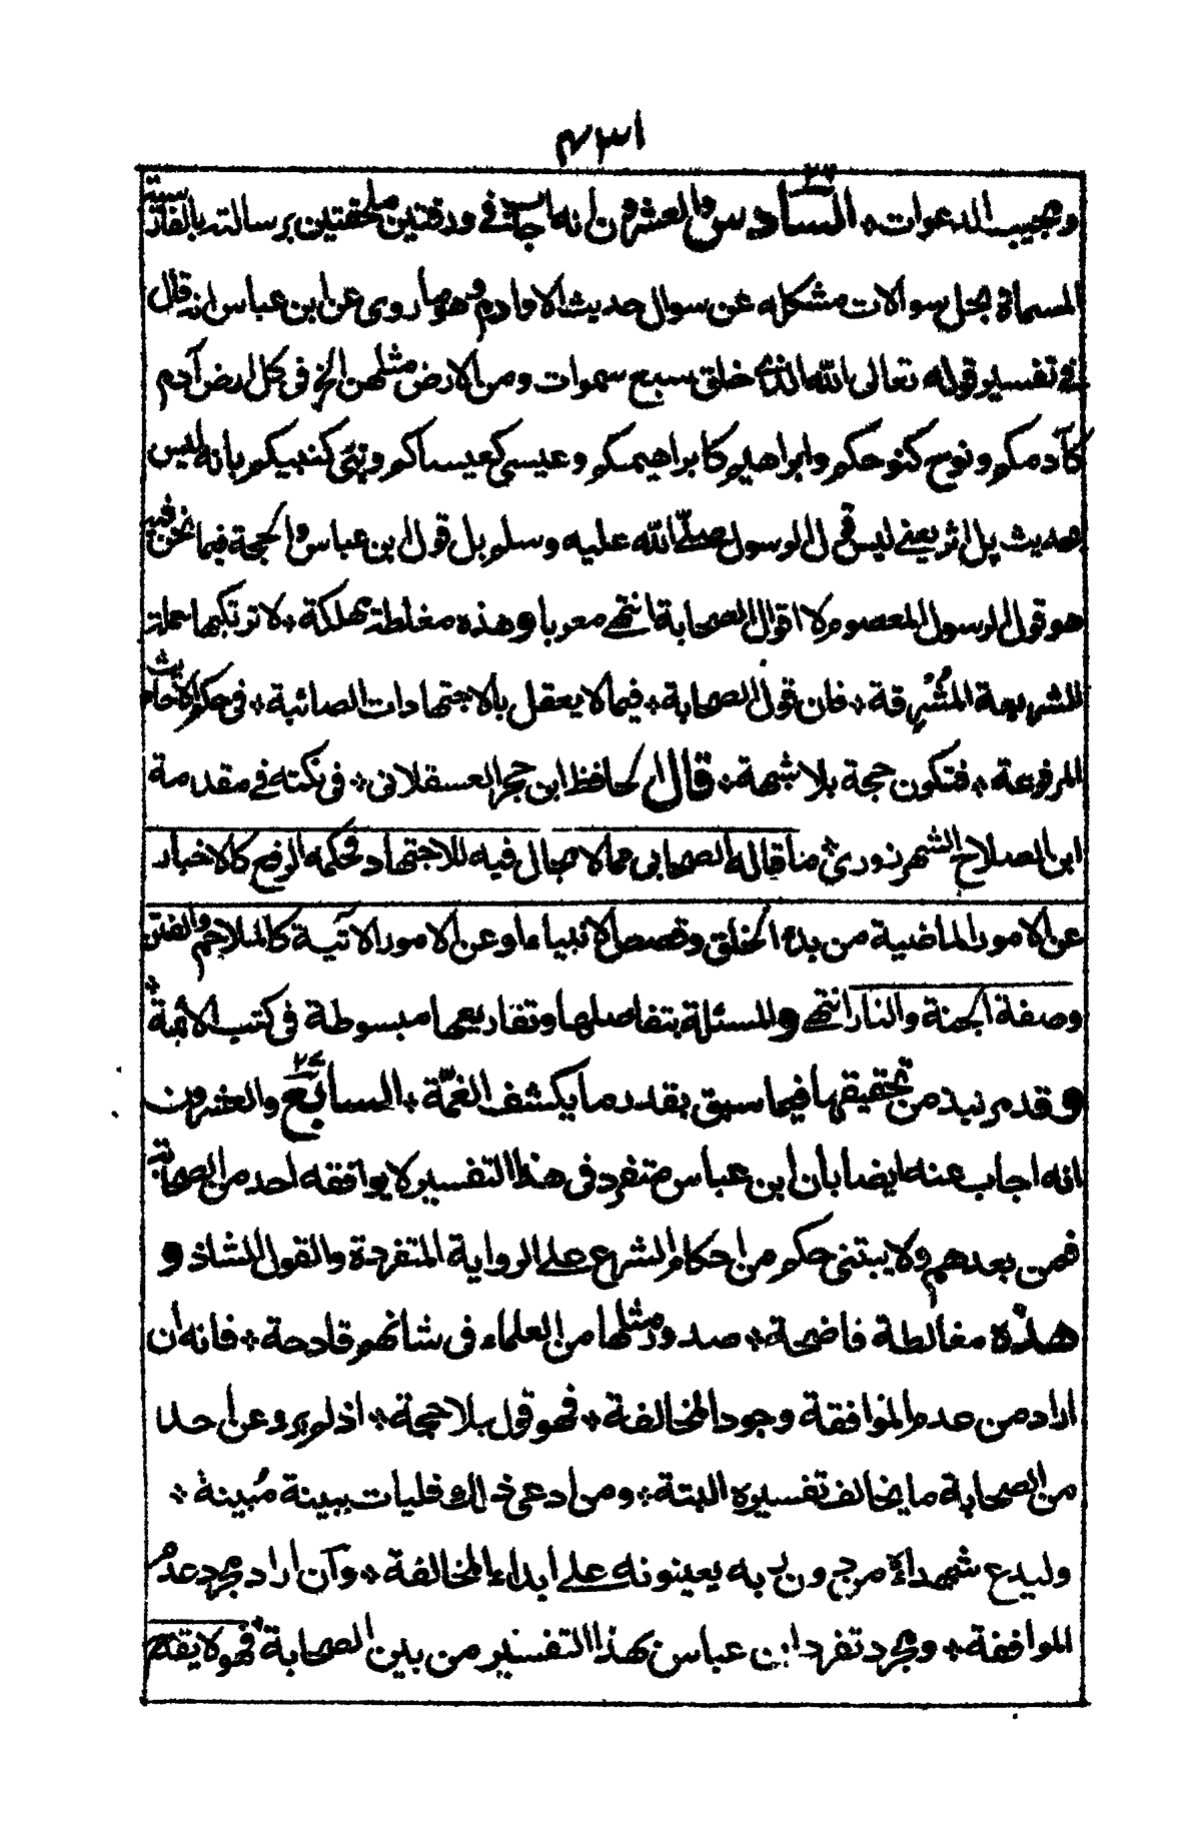 ٤٣١
ومجيب الدعوات * السادس والعشرون انه اجاب في ورقتين ملحقتين برسالته بالفارسية
المسماة بحل سوالات مشكله عن سوال حديث الاوادم وهو ما روى عن ابن عباس انه قال
في تفسير قوله تعالى الله الذى خلق سبع سموات ومن الارض مثلهن الخ فى كل ارض آدم
كآدمكم ونوح كنوحكم وابراهيم كابراهيمكم وعيسى كعيساكم ونبى كنبيكم بانه ليس
بحديث بل اثر يعنے ليس قول الرسول صلے الله عليه وسلم بل قول ابن عباس والحجة فيما نحن فيه
هو قول الرسول المعصوم لا اقوال الصحابة انتهے معربا وهذه مغلطة مهلكة * لا ترتكبها حملة
الشريعة المُشرقة * فان قول الصحابة * فيما لا يعقل بالاجتهادات الصائبة * فى حكم الاحاديث
المرفوعة * فتكون حجة بلا شبهة * قال الحافظ ابن حجر العسقلانى * فى نكته في مقدمة
ابن الصلاح الشهرزورى ما قاله الصحابى مما لا مجال فيه للاجتهاد فحكمه الرفع كالاخبار
عن الامور الماضية من بدء الخلق وقصص الانبياء او عن الامور الآتية كالملاحم والفتن
وصفة الجنة والنار انتهے والمسئلة بتفاصيلها وتفاريعها مبسوطة فى كتب الائمة *
وقد مر نبذ من تحقيقها فيما سبق بقدر ما يكشف الغمّة * السابع والعشرون
انه اجاب عنه ايضا بان ابن عباس متفرد فى هذا التفسير لا يوافقه احد من الصحابة
فمن بعدهم ولا يبتنى حكم من احكام الشرع علے الرواية المتفردة والقول الشاذ و
هذه مغالطة فاضحة * صدور مثلها من العلماء فى شانهم قادحة * فانه ان
اراد من عدم الموافقة وجود المخالفة * فهو قول بلا حجة * اذ لم يرو عن احد
من الصحابة ما يخالف تفسيره البتة * ومن ادعى ذلك فليات ببينة مُبينة *
وليدع شهداءه من دون ربه يعينونه علے ابداء المخالفة * وان اراد مجرد عدم
الموافقة * ومجرد تفرد ابن عباس بهذا التفسير من بين الصحابة * فهو لا يقدح